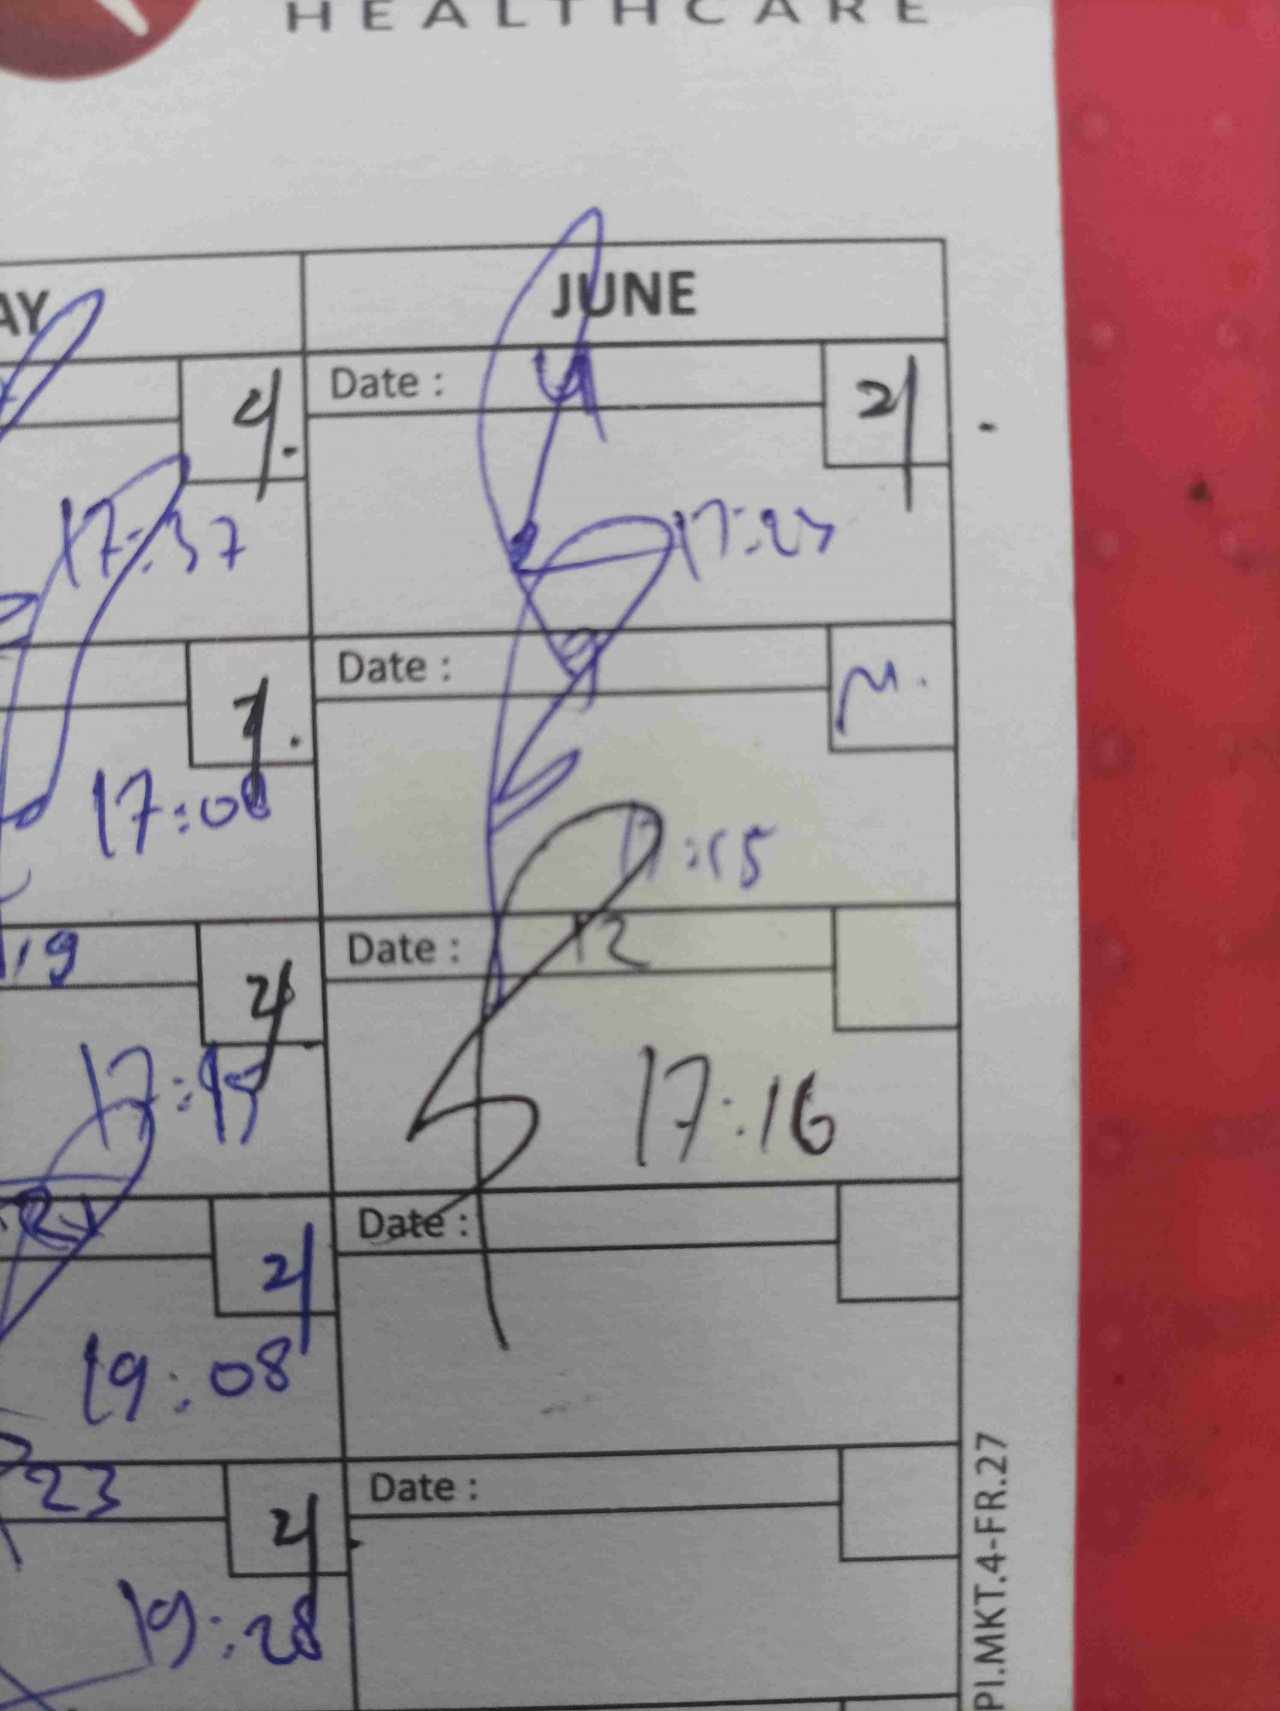 HEALTHCARE
AY JUNE
Date : 4 21
4.
17:37 17:27
Date :
17:08 17:15
19 Date : 12
21
17:45 17:16
Date :
21
19:08
23 Date :
21
19:28
PI.MKT.4-FR.27